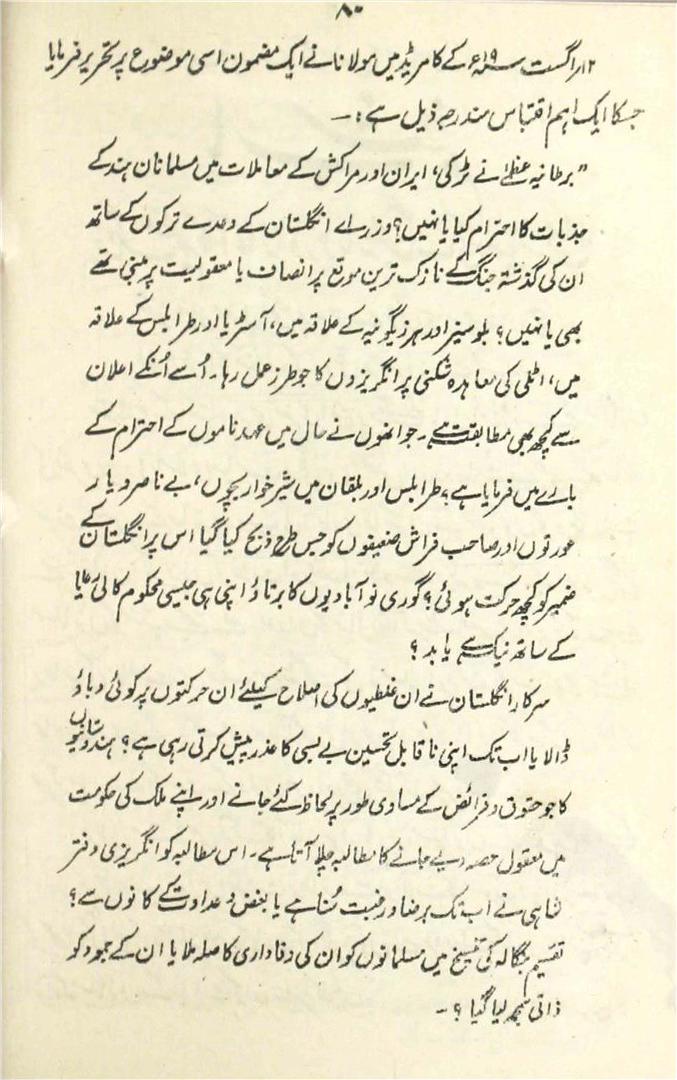 ۸۰
۱۲ اگست ۱۹ء کے کامریڈ میں مولانا نے ایک مضمون اسی موضوع پر تحریر فرمایا
جسکا ایک اہم اقتباس مندرجہ ذیل ہے :۔
” برطانیہ عظمےٰ نے ٹرکی، ایران اور مراکش کے معاملات میں مسلمانان ہند کے
جذبات کا احترام کیا یا نہیں؟ وزرائے انگلستان کے وعدے ترکوں کے ساتھ
ان کی گذشتہ جنگ کے نازک ترین موقع پر انصاف یا معقولیت پر مبنی تھے
بھی یا نہیں؟ بلوسینز اور ہرزیگونیہ کے علاقہ میں، آسٹریا اور طرابلس کے علاقہ
میں، اٹلی کی معاہدہ شکنی پر انگریزوں کا جو طرز عمل رہا۔ اُسے اُنکے اعلان
سے کچھ بھی مطابقت ہے۔ جو انہوں نے حال میں عہد ناموں کے احترام کے
بارے میں فرمایا ہے؟ طرابلس اور بلقان میں شیر خوار بچوں، بے ناصر و یار
عورتوں اور صاحب فراش ضعیفوں کو جس طرح ذبح کیا گیا اس پر انگلستان کے
ضمیر کو کچھ حرکت ہوئی؟ گوری نو آبادیوں کا برتاؤ اپنی ہی جیسی محکوم کالی رعایا
کے ساتھ نیک ہے یا بد؟
سرکار انگلستان نے ان غلطیوں کی اصلاح کیلئے ان حرکتوں پر کوئی دباؤ
ڈالا یا اب تک اپنی ناقابل تحسین بے بسی کا عذر پیش کرتی رہی ہے؟ ہندوستانیوں
کا جو حقوق و فرائض کے مساوی طور پر لحاظ کئے جانے اور اپنے ملک کی حکومت
میں معقول حصہ دیے جانے کا مطالبہ چلا آتا ہے۔ اس مطالبہ کو انگریزی دفتر
شاہی نے اب تک برضا و رغبت سُنا ہے یا بغض و عداوت کے کانوں سے؟
تقسیم بنگالہ کی تنسیخ میں مسلمانوں کو ان کی وفاداری کا صلہ ملا یا ان کے جمود کو
ذاتی سمجھ لیا گیا؟ ۔